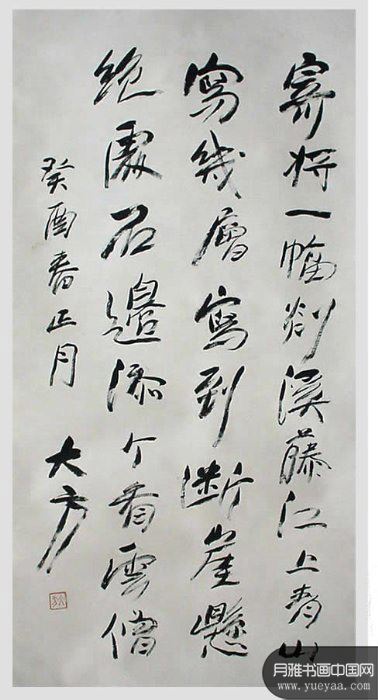 寄将一幅剡溪藤江上青山
寫幾層寫到断崖懸
絶處石邊添个看雲僧
癸酉春正月
大方
月雅书画中国网
www.yueyaa.com